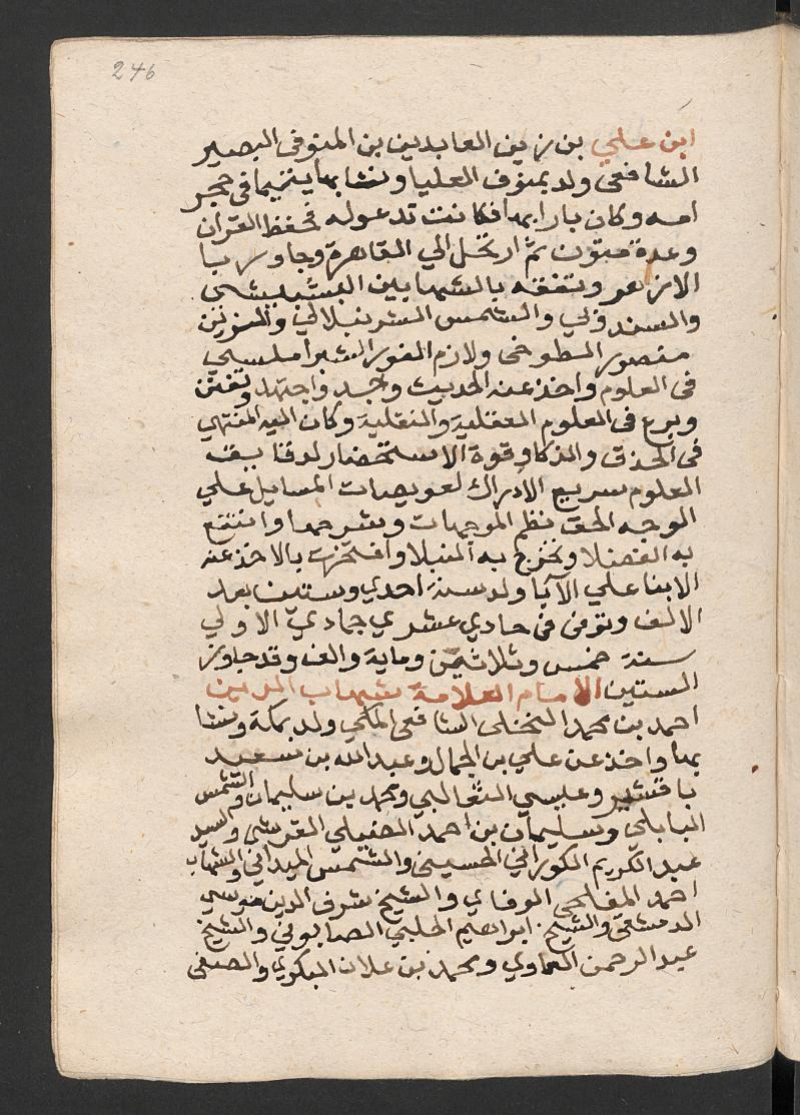 246
ابن علي بن زين العابدين بن المنوفى البصير
الشافعى ولد بمنوف العليا ونشا بها يتيما فى حجر
امه وكان بارا بها فكانت تدعوله فحفظ القران
وعدة متون ثم ارتحل الي القاهرة وجاور با
الازهر وتفقه بالشهابين البشبيشى
والسندوبي والشمس الشرنبلالي والزين
منصور الطوخى ولازم النور الشبراملسي
فى العلوم واخذ عنه الحديث وجد واجتهد وتفنن
وبرع فى العلوم العقلية والنقلية وكان اليه المنتهي
فى الحذق والذكا وقوة الاستحضار لدقايق
العلوم سريع الادراك لعويصات المسايل علي
الوجه الحق نظم الموجهات وشرحها وانتفع
به الفضلا وتخرج به النبلا وافتخرت بالاخذ عنه
الابنا علي الآبا ولد سنة احدي وستين بعد
الالف وتوفى فى حادي عشري جمادي الاولي
سنة خمس وثلاثين وماية والف وقد جاوز
الستين الامام العلامة شهاب الدين
احمد بن محمد النخلى الشافعى المكي ولد بمكة ونشا
بها واخذ عن علي بن الجمال وعبد الله بن سعيد
باقشير وعيسي الثعالبي ومحمد بن سليمان والشمس
البابلي وسليمان بن احمد الضيلي القرشى والسيد
عبد الكريم الكوراني الحسينى والشمس الميداني والشهاب
احمد المفلحى الوفاي والشيخ شرف الدين موسي
الدمشقى والشيخ ابراهيم الحلبي الصابوني والشيخ
عبد الرحمن العماوي ومحمد بن علان البكري والصفى